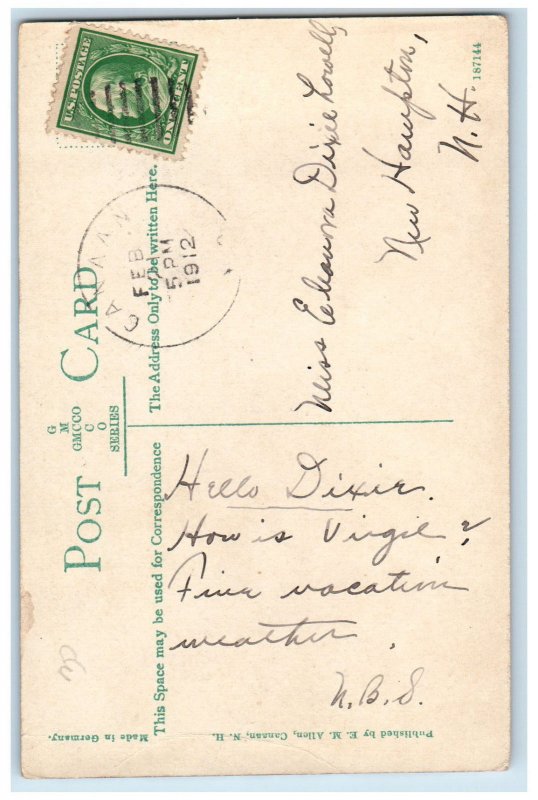 POST CARD
G
M
GMCCO
C
O
SERIES
This Space may be used for Correspondence
The Address Only to be written Here.
U.S. POSTAGE
ONE CENT
CANAAN
FEB
5 PM
1912
Hello Dixie.
How is Virgil?
Fine vacation
weather.
N.B.S.
Miss Eleanora Dixie Lowell,
New Hampton,
N.H.
187144
Made in Germany.
Published by E. M. Allen, Canaan, N. H.